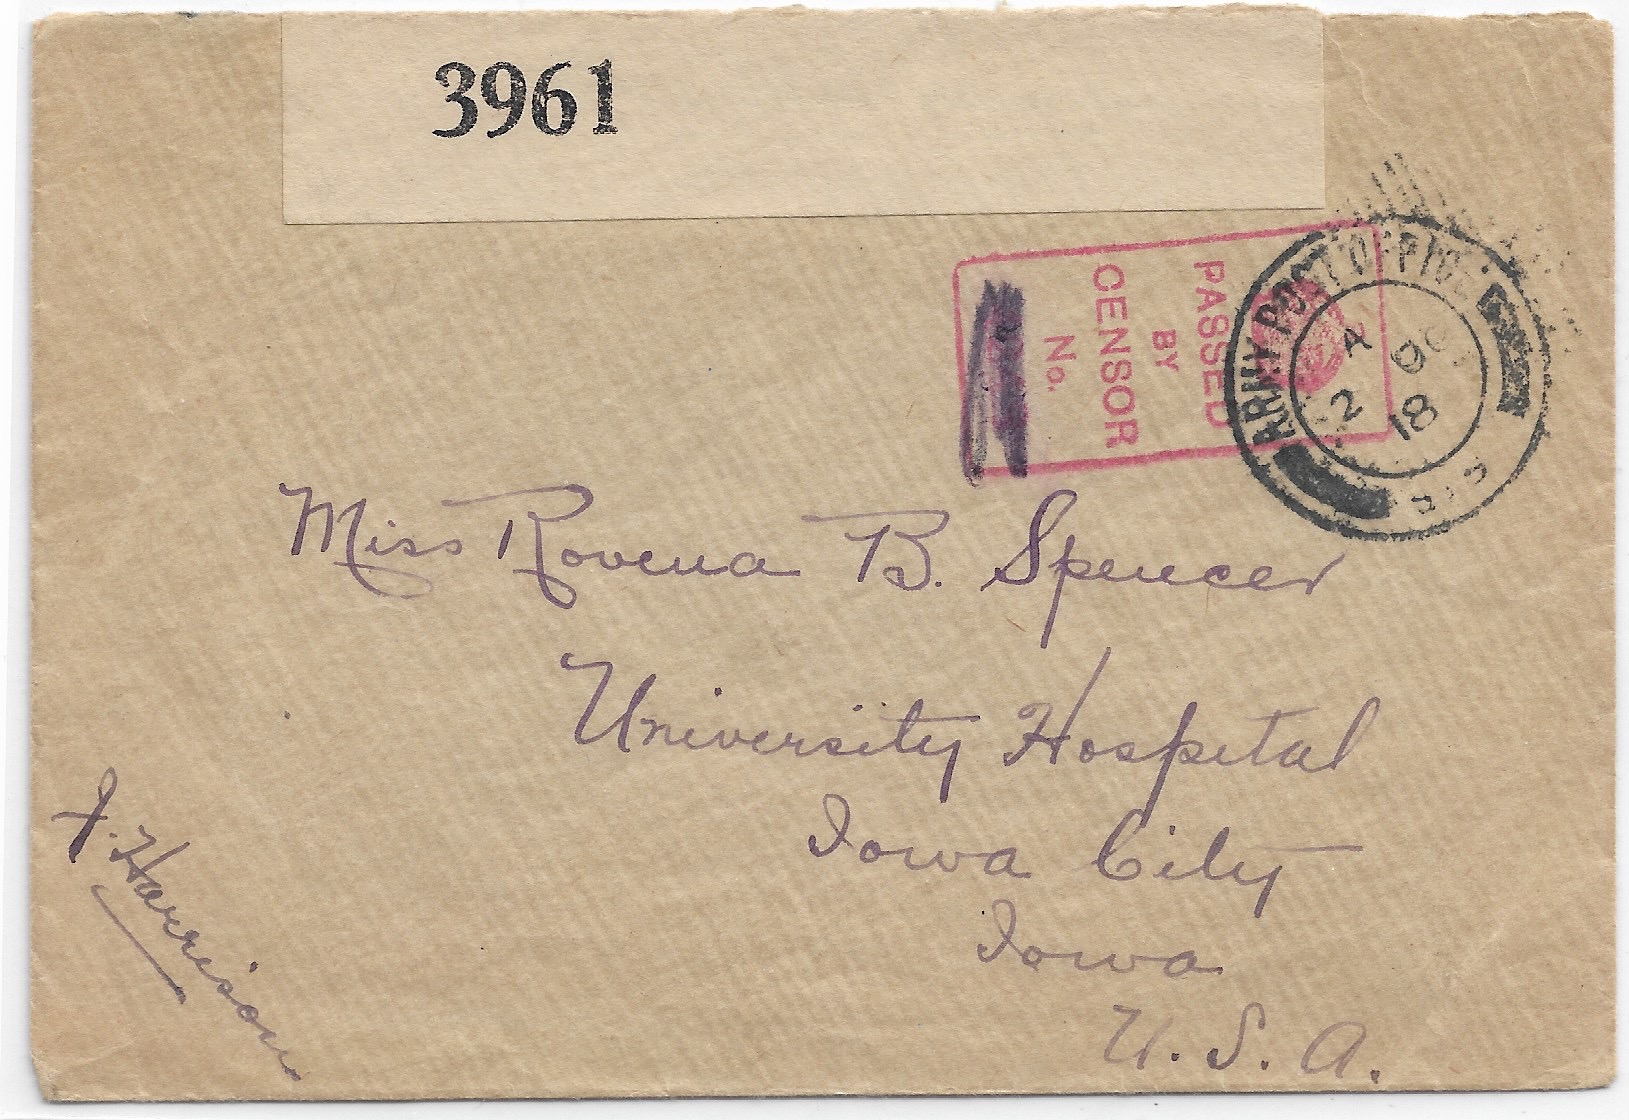 3961
PASSED
BY
CENSOR
No.
ARMY POST OFFICE
A
2 OC
18
Miss Rovena B. Spencer
University Hospital
Iowa City
Iowa
U. S. A.
J. Harrison